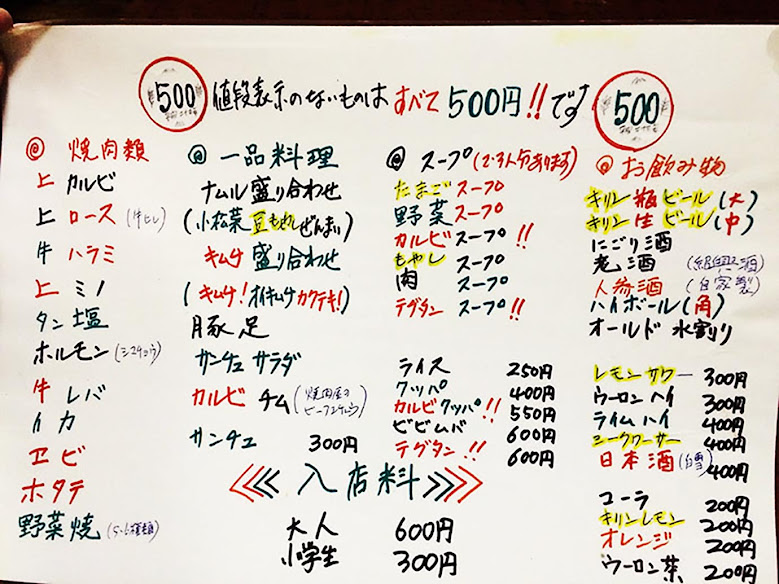 500 値段表示のないものは すべて 500円!! です 500
@ 焼肉類
上 カルビ
上 ロース (牛ヒレ)
牛 ハラミ
上 ミノ
タン塩
ホルモン (シマチョウ)
牛 レバ
イカ
エビ
ホタテ
野菜焼 (5~6種類)
@ 一品料理
ナムル盛り合わせ
(小松菜 豆もやし ぜんまい)
キムチ 盛り合わせ
(キムチ! オイキムチ カクテキ!)
豚足
サンチュ サラダ
カルビ チム (焼肉屋の ビーフシチュウ)
サンチュ 300円
@ スープ (2~3人分あります)
たまご スープ
野菜 スープ
カルビ スープ !!
もやし スープ
肉 スープ
テグタン スープ !!
ライス 250円
クッパ 400円
カルビ クッパ !! 550円
ビビムバ 600円
テグタン !! 600円
@ お飲み物
キリン 瓶 ビール (大)
キリン 生 ビール (中)
にごり酒
老酒 (紹興酒)
人参酒 (自家製)
ハイボール (角)
オールド 水割り
レモン サワー 300円
ウーロン ハイ 300円
ライム ハイ 400円
シークワーサー 400円
日本酒 (白雪) 400円
コーラ 200円
キリンレモン 200円
オレンジ 200円
ウーロン茶 200円
<<<< 入店料 >>>>
大人 600円
小学生 300円